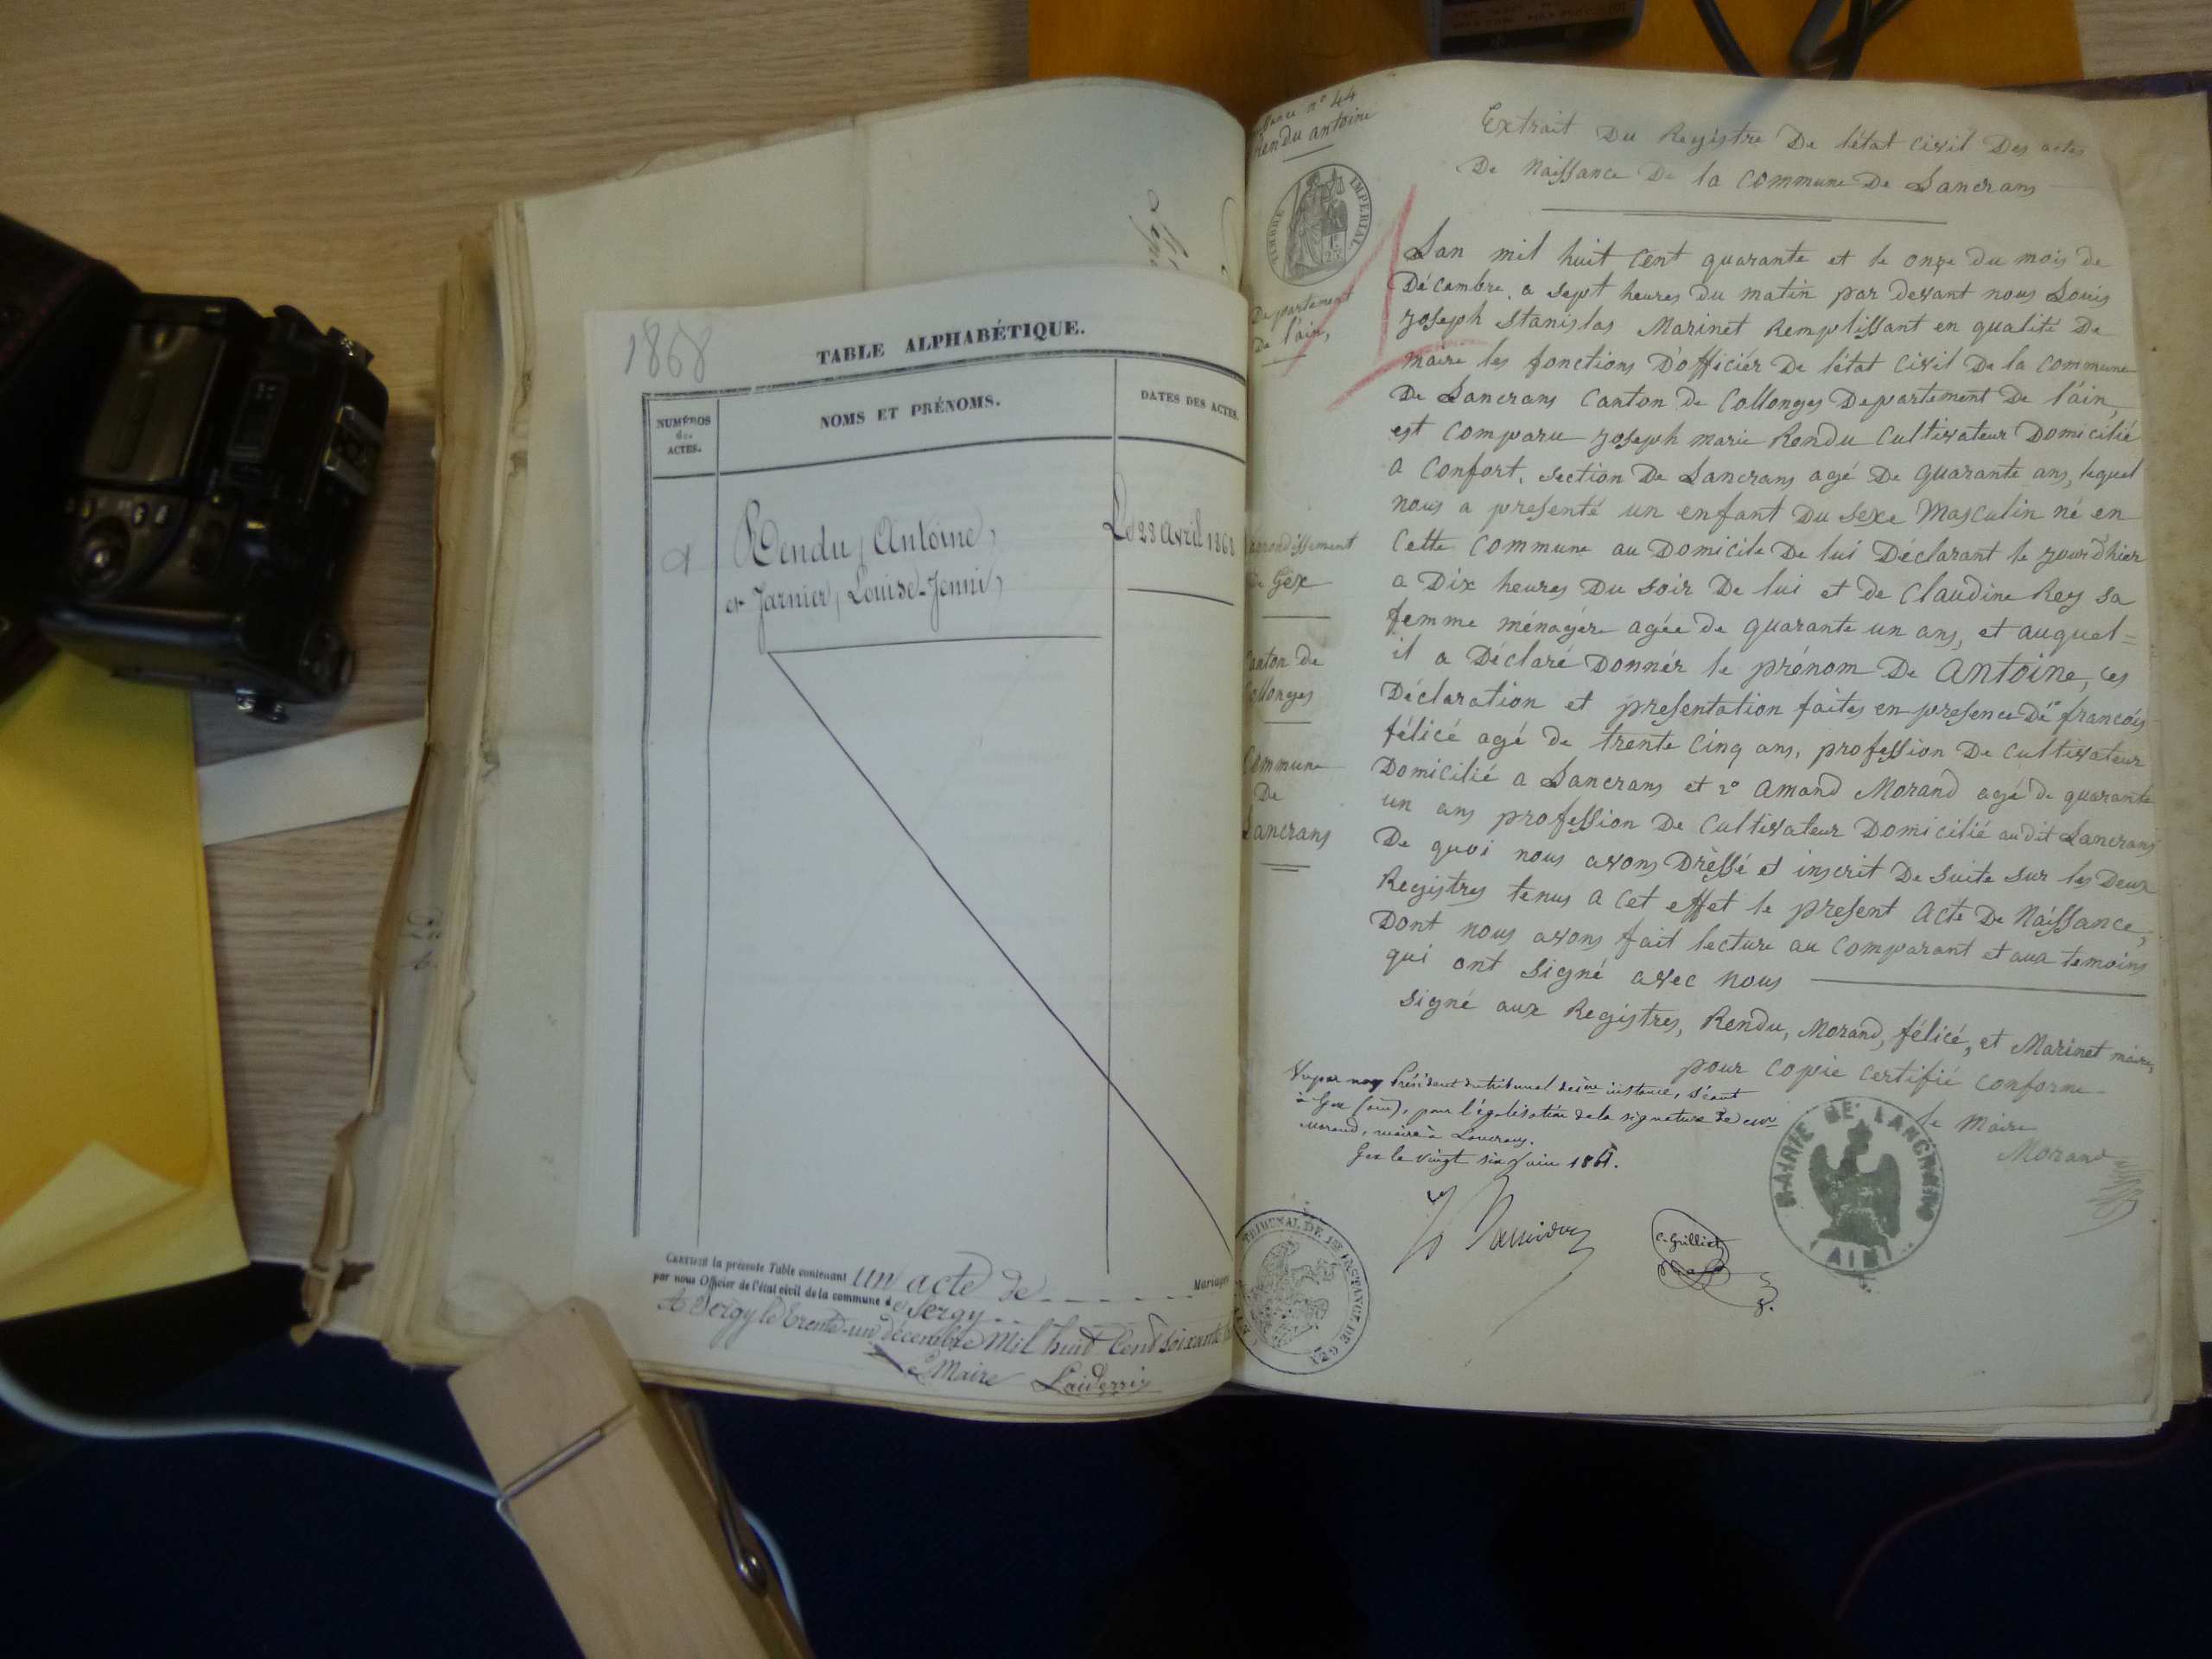 1868
TABLE ALPHABÉTIQUE.
NUMÉROS
des
ACTES.
NOMS ET PRÉNOMS.
DATES DES ACTES.
Rendu, Antoine,
et Jarnier, Louise-Jenni,
Le 23 avril 1868
CERTIFIÉ la présente Table contenant un acte de Mariages
par nous Officier de l'état civil de la commune de Sergy
A Sergy le trente-un décembre mil huit cent soixante
Le Maire
naissance n° 44
Rendu antoine
TIMBRE IMPERIAL
Departement
De l'ain,
arrondissement
de Gex
Canton de
Collonges
Commune
De
Lancrans
Extrait Du Registre De l'état Civil Des actes
De Naissance De la Commune De Lancrans
Lan mil huit Cent quarante et le onze du mois de
Décembre, a sept heures du matin par devant nous Louis
Joseph Stanislas Marinet Remplissant en qualité De
maire les fonctions D'officiér De l'état Civil De la Commune
De Lancrans Canton de Collonges Departement De l'ain,
est Comparu Joseph marie Rendu Cultivateur Domicilié
a Confort, section De Lancrans agé De quarante ans, lequel
nous a presenté un enfant Du sexe Masculin né en
Cette Commune au Domicile De lui Déclarant le jourdhier
a Dix heures Du soir De lui et de Claudine Rey sa
femme ménagére agée de quarante un ans, et auquel=
il a Déclaré Donnér le prénom De Antoine, ces
Déclaration et presentation faites en presence De 1° francois
félicé agé de trente Cinq ans, profession De Cultivateur
Domicilié a Lancrans et 2° Amand Morand agé de quarante
un ans profession De Cultivateur Domicilié audit Lancrans
De quoi nous avons Dressé et inscrit De suite sur les Deux
Registres tenus a Cet effet le present Acte De Naissance,
Dont nous avons fait lecture au Comparant et aux temoins
qui ont signé avec nous
signé aux Registres, Rendu, Morand, félicé, et Marinet maire,
pour Copie Certifié Conforme
le Maire
Morand
Vu par nous Président du tribunal de 1ère instance, séant
à Gex (ain), pour légalisation de la signature de
Morand, maire à Lancrans.
Gex le vingt six juin 1861.
C. Grilliet
MAIRIE DE LANCRANS
(AIN)
TRIBUNAL DE 1ERE INSTANCE DE GEX